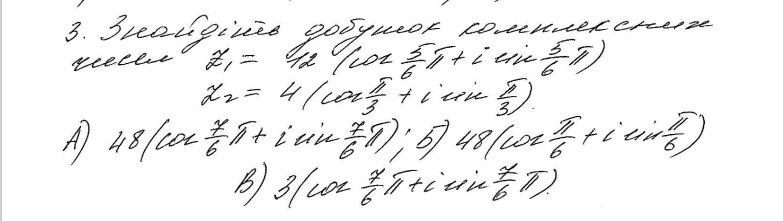 3. Знайдіть добуток комплексних
чисел z₁ = 12 (cos 5/6 π + i sin 5/6 π)
z₂ = 4 (cos π/3 + i sin π/3).
А) 48 (cos 7/6 π + i sin 7/6 π); Б) 48 (cos π/6 + i sin π/6)
В) 3 (cos 7/6 π + i sin 7/6 π).